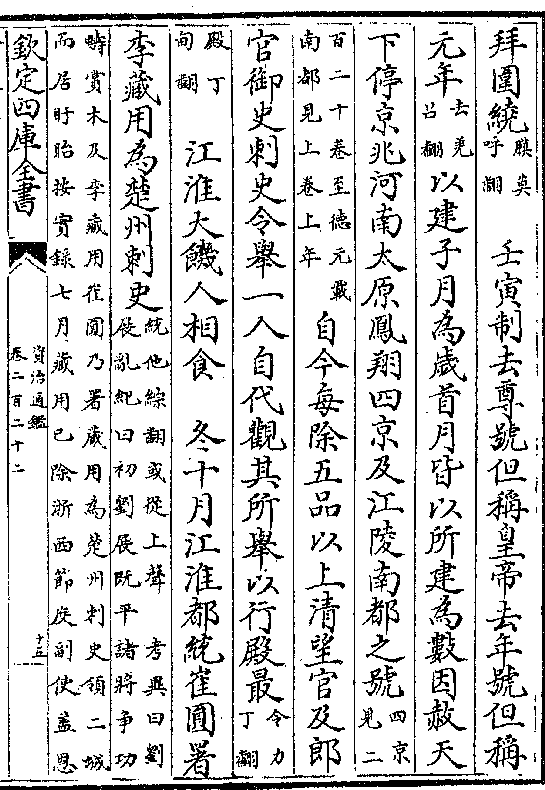 拜圍繞膜莫呼翻　壬寅制去尊號但稱皇帝去年號但稱
元年去羌呂翻以建子月為歲首月皆以所建為數因赦天
下停京兆河南太原鳳翔四京及江陵南都之號四京見二
百二十卷至德元載南都見上卷上年　自今每除五品以上清望官及郎
官御史刺史令舉一人自代觀其所舉以行殿最令力丁翻
殿丁甸翻　江淮大饑人相食　冬十月江淮都統崔圓署
李藏用為楚州刺史統他綜翻或從上聲　考異曰劉展亂紀曰初劉展既平諸將爭功
疇賞未及李藏用崔圓乃署藏用為楚州刺史領二城
而居盱眙按實録七月藏用已除浙西節度副使蓋恩
欽定四庫全書
資治通鑑
卷二百二十二